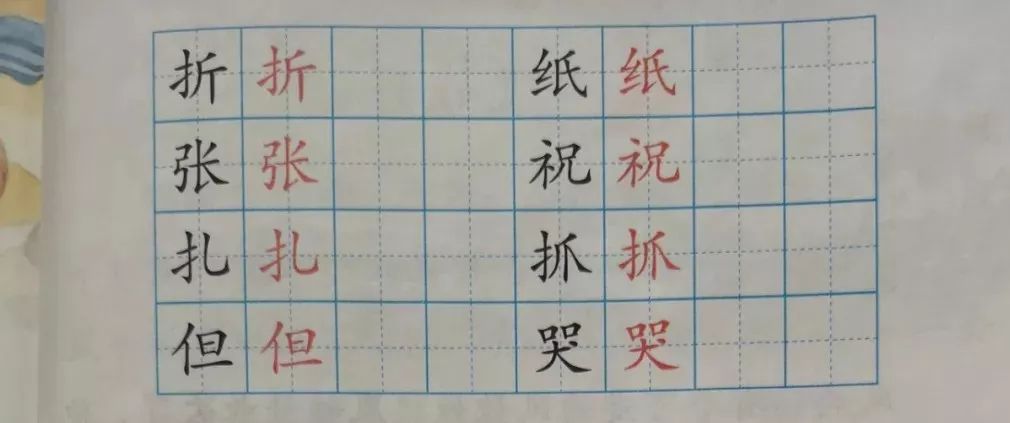 折 折 纸 纸
张 张 祝 祝
扎 扎 抓 抓
但 但 哭 哭